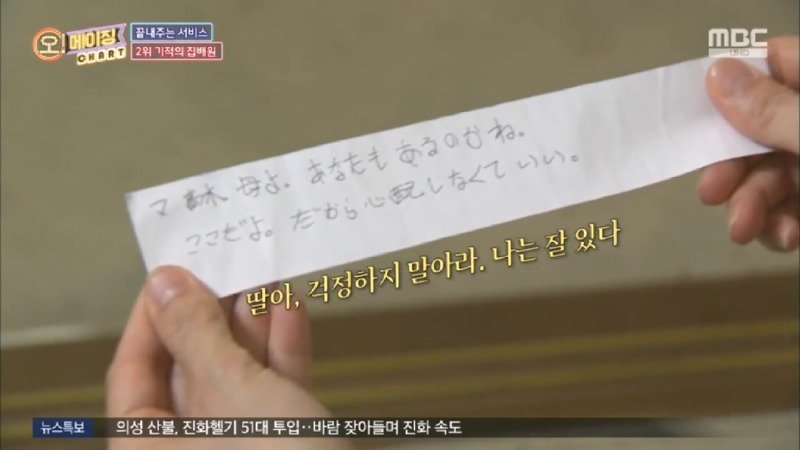 오!
메이징
CHART
끝내주는 서비스
2위 기적의 집배원
MBC
UHD
マ 母よ。あなたもあるのかね。
ここだよ。だから心配しなくていい。
딸아, 걱정하지 말아라. 나는 잘 있다
뉴스특보
의성 산불, 진화헬기 51대 투입‥바람 잦아들며 진화 속도